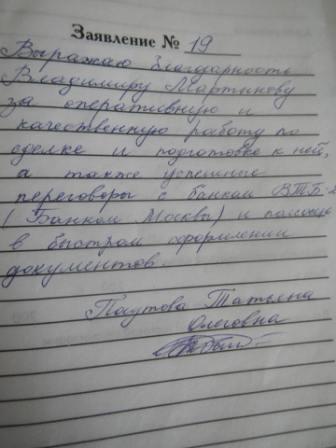 Заявление № 19
Выражаю благодарность
Владимиру Мартинову
за оперативную и
качественную работу по
сделке и подготовке к ней,
а также успешные
переговоры с банком ВТБ-
(Банком Москвы) и помощь
в быстром оформлении
документов.
Паутова Татьяна
Олеговна